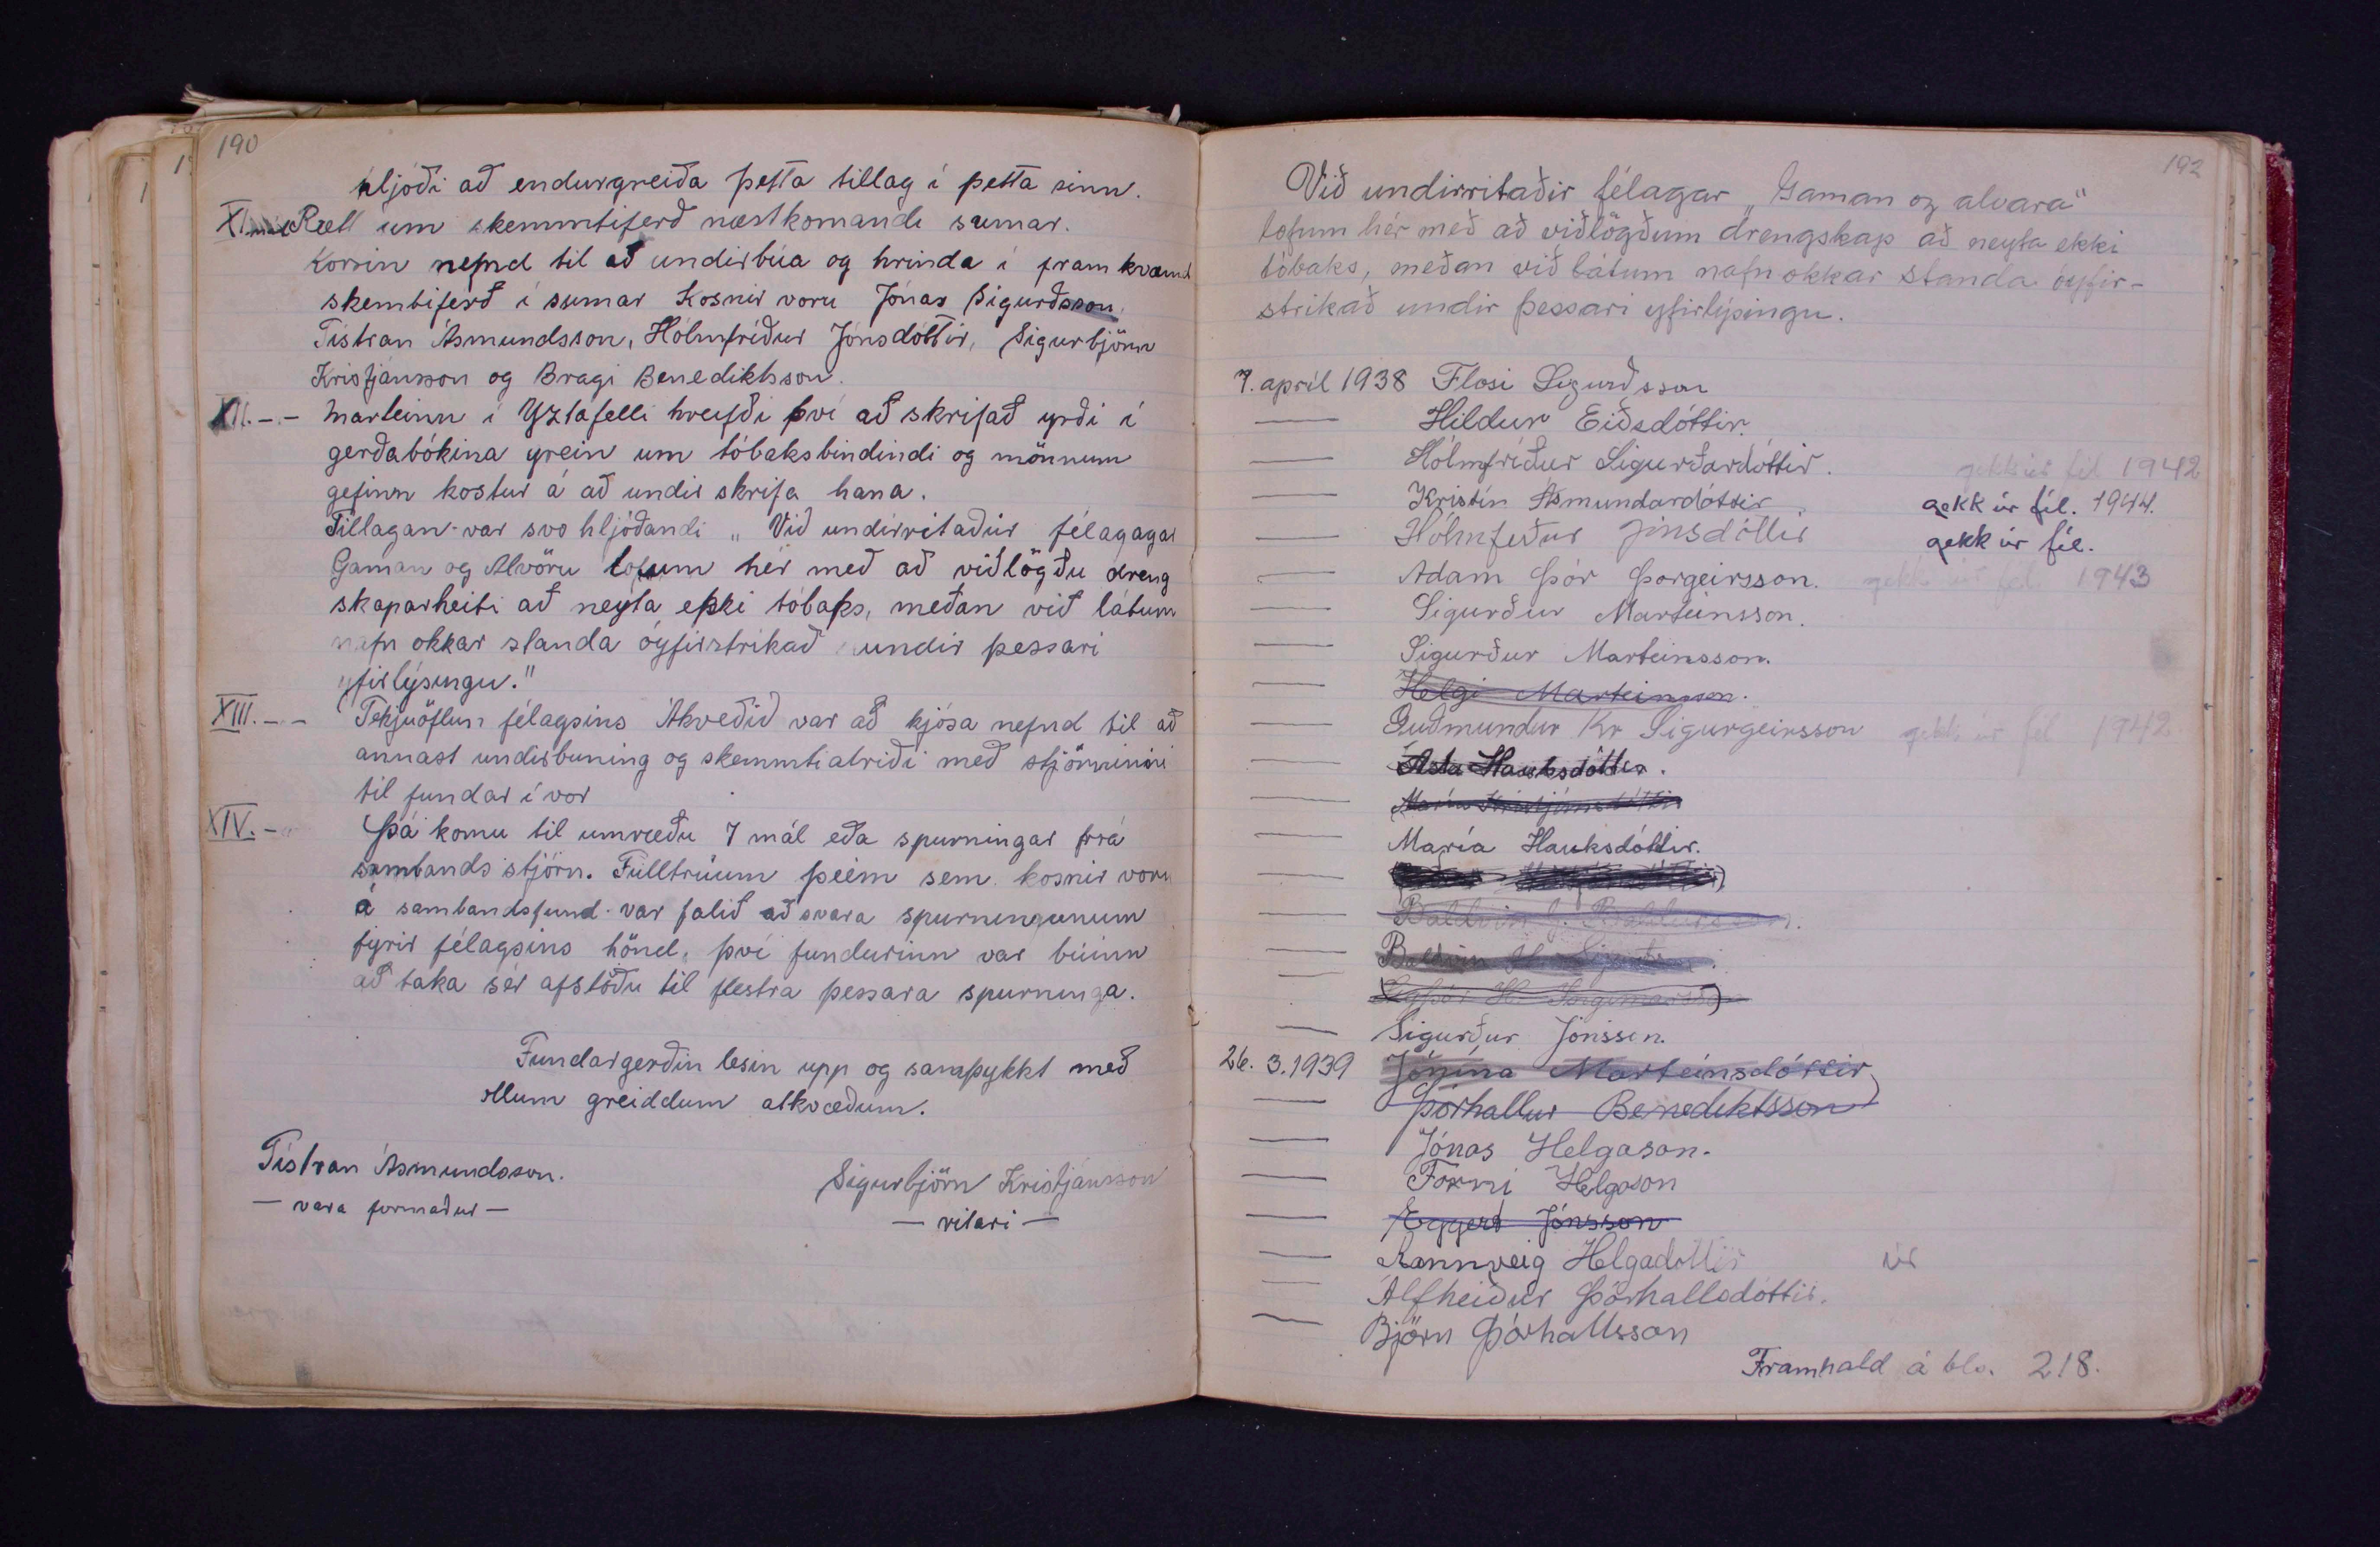 190
hljóði að endurgreiða þetta tillag í þetta sinn.
XI. Rætt um skemmtiferð næstkomandi sumar.
Kosin nefnd til að undirbúa og hrinda í framkvæmd
skemtiferð í sumar Kosnir voru Jónas Sigurðsson,
Tístran Ásmundsson, Hólmfríður Jónsdóttir, Sigurbjörn
Kristjánsson og Bragi Benediktsson.
XII. - - Marteinn í Yztafelli hreyfði því að skrifað yrði í
gerðabókina grein um tóbaksbindindi og mönnum
gefinn kostur á að undir skrifa hana.
Tillagan var svo hljóðandi „Við undirritaðir félagagar
Gaman og Alvöru lofum hér með að viðlögðu dreng
skaparheiti að neyta ekki tóbaks, meðan við látum
nafn okkar standa óyfirstrikað undir þessari
yfirlýsingu."
XIII. - - Tekjuöflun félagsins Ákveðið var að kjósa nefnd til að
annast undirbuning og skemmtiatriði með stjórninni
til fundar í vor
XIV. - Þá komu til umræðu 7 mál eða spurningar frá
sambands stjórn. Fulltrúum þeim sem kosnir voru
á sambandsfund var falið að svara spurningunum
fyrir félagsins hönd, því fundurinn var búinn
að taka sér afstöðu til flestra þessara spurninga.
Fundargerðin lesin upp og samþykkt með
öllum greiddum atkvæðum.
Tístran Ásmundsson.
- vara formaður -
Sigurbjörn Kristjánsson
- ritari -
192
Við undirritaðir félagar „Gaman og alvara"
lofum hér með að viðlögðum drengskap að neyta ekki
tóbaks, meðan við látum nafn okkar standa óyfir-
strikað undir þessari yfirlýsingu.
7. apríl 1938 Flosi Sigurðsson
— Hildur Eiðsdóttir.
— Hólmfríður Sigurðardóttir. gekk úr fél 1942
— Kristín Ásmundardóttir gekk úr fél. 1944.
— Hólmfríður Jónsdóttir gekk úr fél.
— Adam Þór Þorgeirsson. gekk úr fél. 1943
— Sigurður Marteinsson.
— Sigurður Marteinsson.
— Helgi Marteinsson.
— Guðmundur Kr Sigurgeirsson gekk úr fél 1942
— Ásta Hauksdóttir.
— María Kristjánsdóttir
— María Hauksdóttir.
—
— Baldvin J. Baldursson.
— Baldvin
—
— Sigurður Jónsson.
26. 3. 1939 Jónína Marteinsdóttir
— Þórhallur Benediktsson
— Jónas Helgason.
— Forni Helgason
— Eggert Jónsson
— Rannveig Helgadóttir úr
— Álfheiður Þórhallsdóttir.
— Björn Þórhallsson
Framhald á bls. 218.